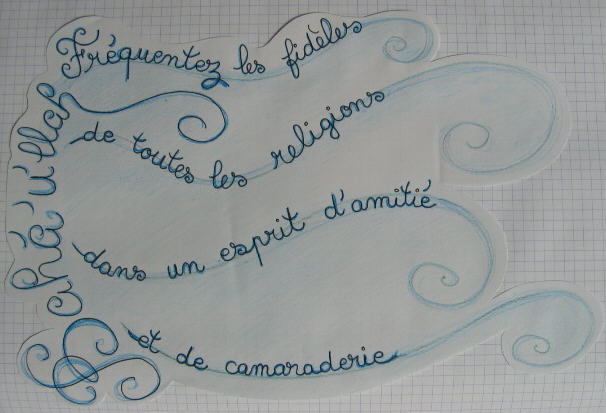 Fréquentez les fidèles
de toutes les religions
dans un esprit d'amitié
et de camaraderie
Bahá'u'lláh